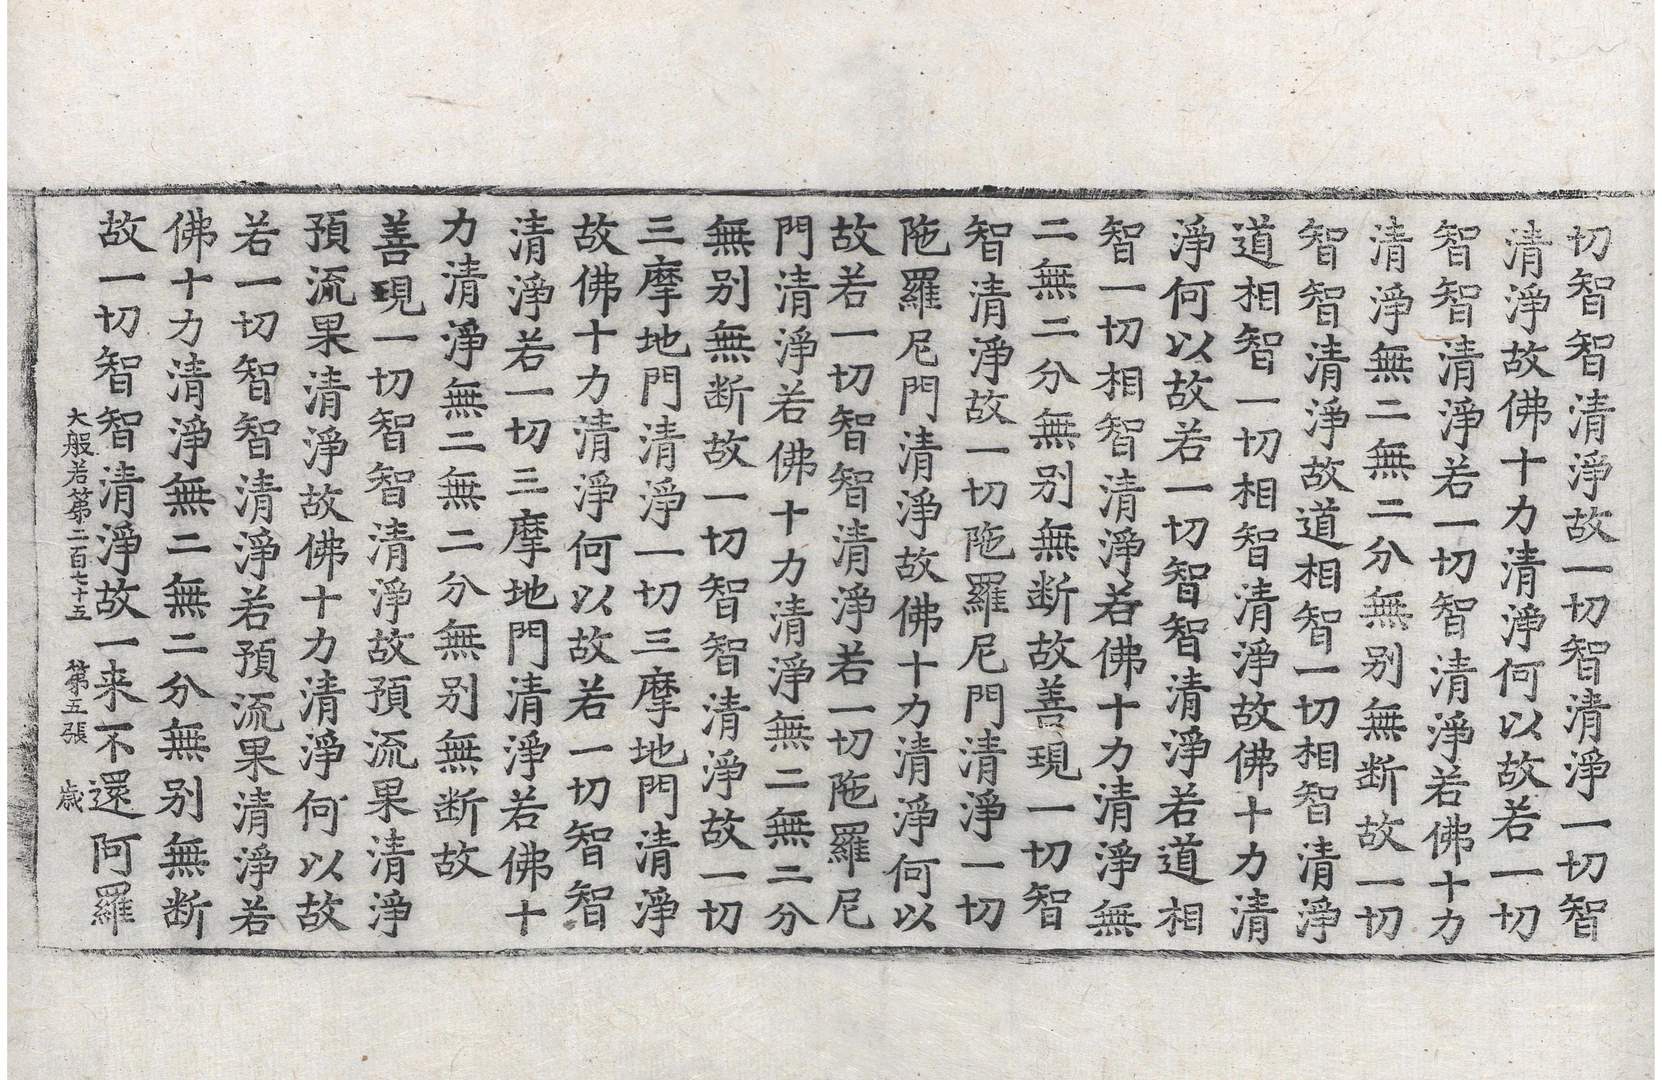 切智智清淨故一切智清淨一切智
清淨故佛十力清淨何以故若一切
智智清淨若一切智清淨若佛十力
清淨無二無二分無别無断故一切
智智清淨故道相智一切相智清淨
道相智一切相智清淨故佛十力清
淨何以故若一切智智清淨若道相
智一切相智清淨若佛十力清淨無
二無二分無别無断故善現一切智
智清淨故一切陁羅尼門清淨一切
陁羅尼門清淨故佛十力清淨何以
故若一切智智清淨若一切陁羅尼
門清淨若佛十力清淨無二無二分
無别無断故一切智智清淨故一切
三摩地門清淨一切三摩地門清淨
故佛十力清淨何以故若一切智智
清淨若一切三摩地門清淨若佛十
力清淨無二無二分無别無断故
善現一切智智清淨故預流果清淨
預流果清淨故佛十力清淨何以故
若一切智智清淨若預流果清淨若
佛十力清淨無二無二分無别無断
故一切智智清淨故一来不還阿羅
大般若第二百七十五 第五張 歳